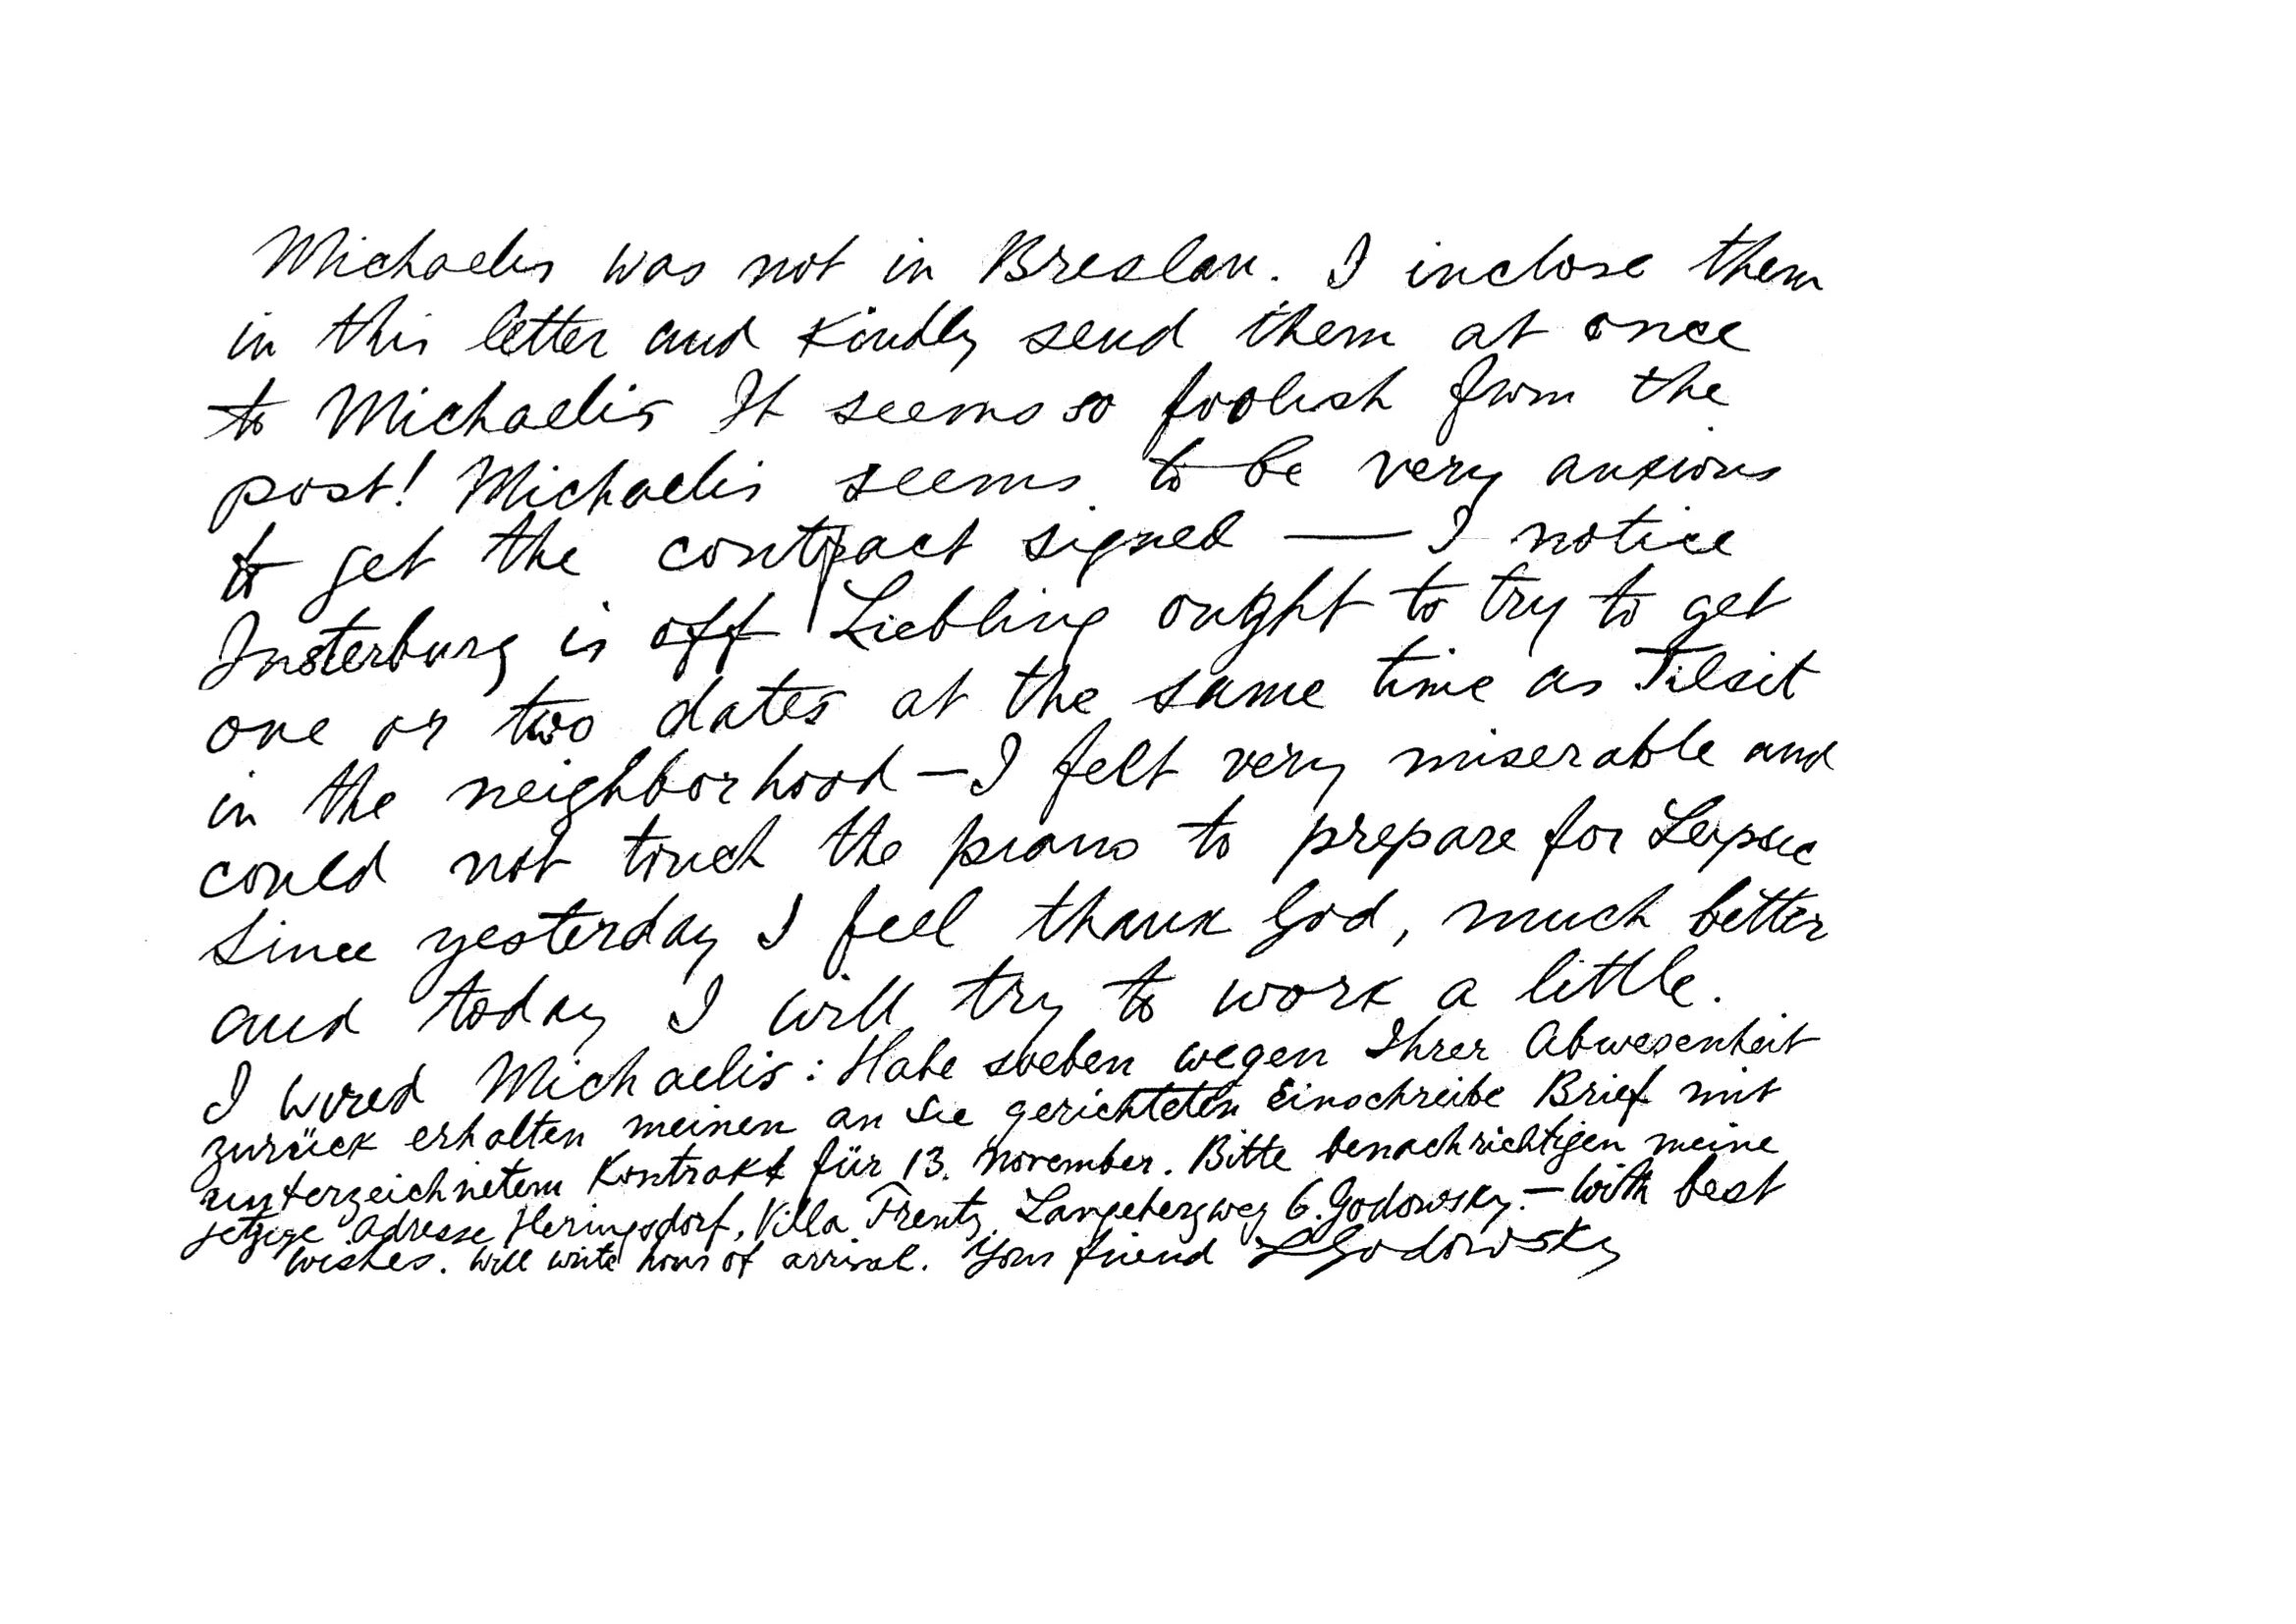 Michaelis was not in Breslau. I inclose them
in this letter and kindly send them at once
to Michaelis It seems so foolish from the
post! Michaelis seems to be very anxious
to get the contract signed — I notice
Insterburg is off Liebling ought to try to get
one or two dates at the same time as Tilsit
in the neighborhood — I felt very miserable and
could not touch the piano to prepare for Leipsic
Since yesterday I feel thank God, much better
and today I will try to work a little.
I wired Michaelis: Habe soeben wegen Ihrer Abwesenheit
zurück erhalten meinen an Sie gerichteten Einschreibe Brief mit
unterzeichnetem Kontrakt für 13. November. Bitte benachrichtigen meine
jetzige Adresse Heringsdorf, Villa Frentz, Langebergweg 6. Godowsky. — With best
wishes. Will write hour of arrival. Your friend LGodowsky